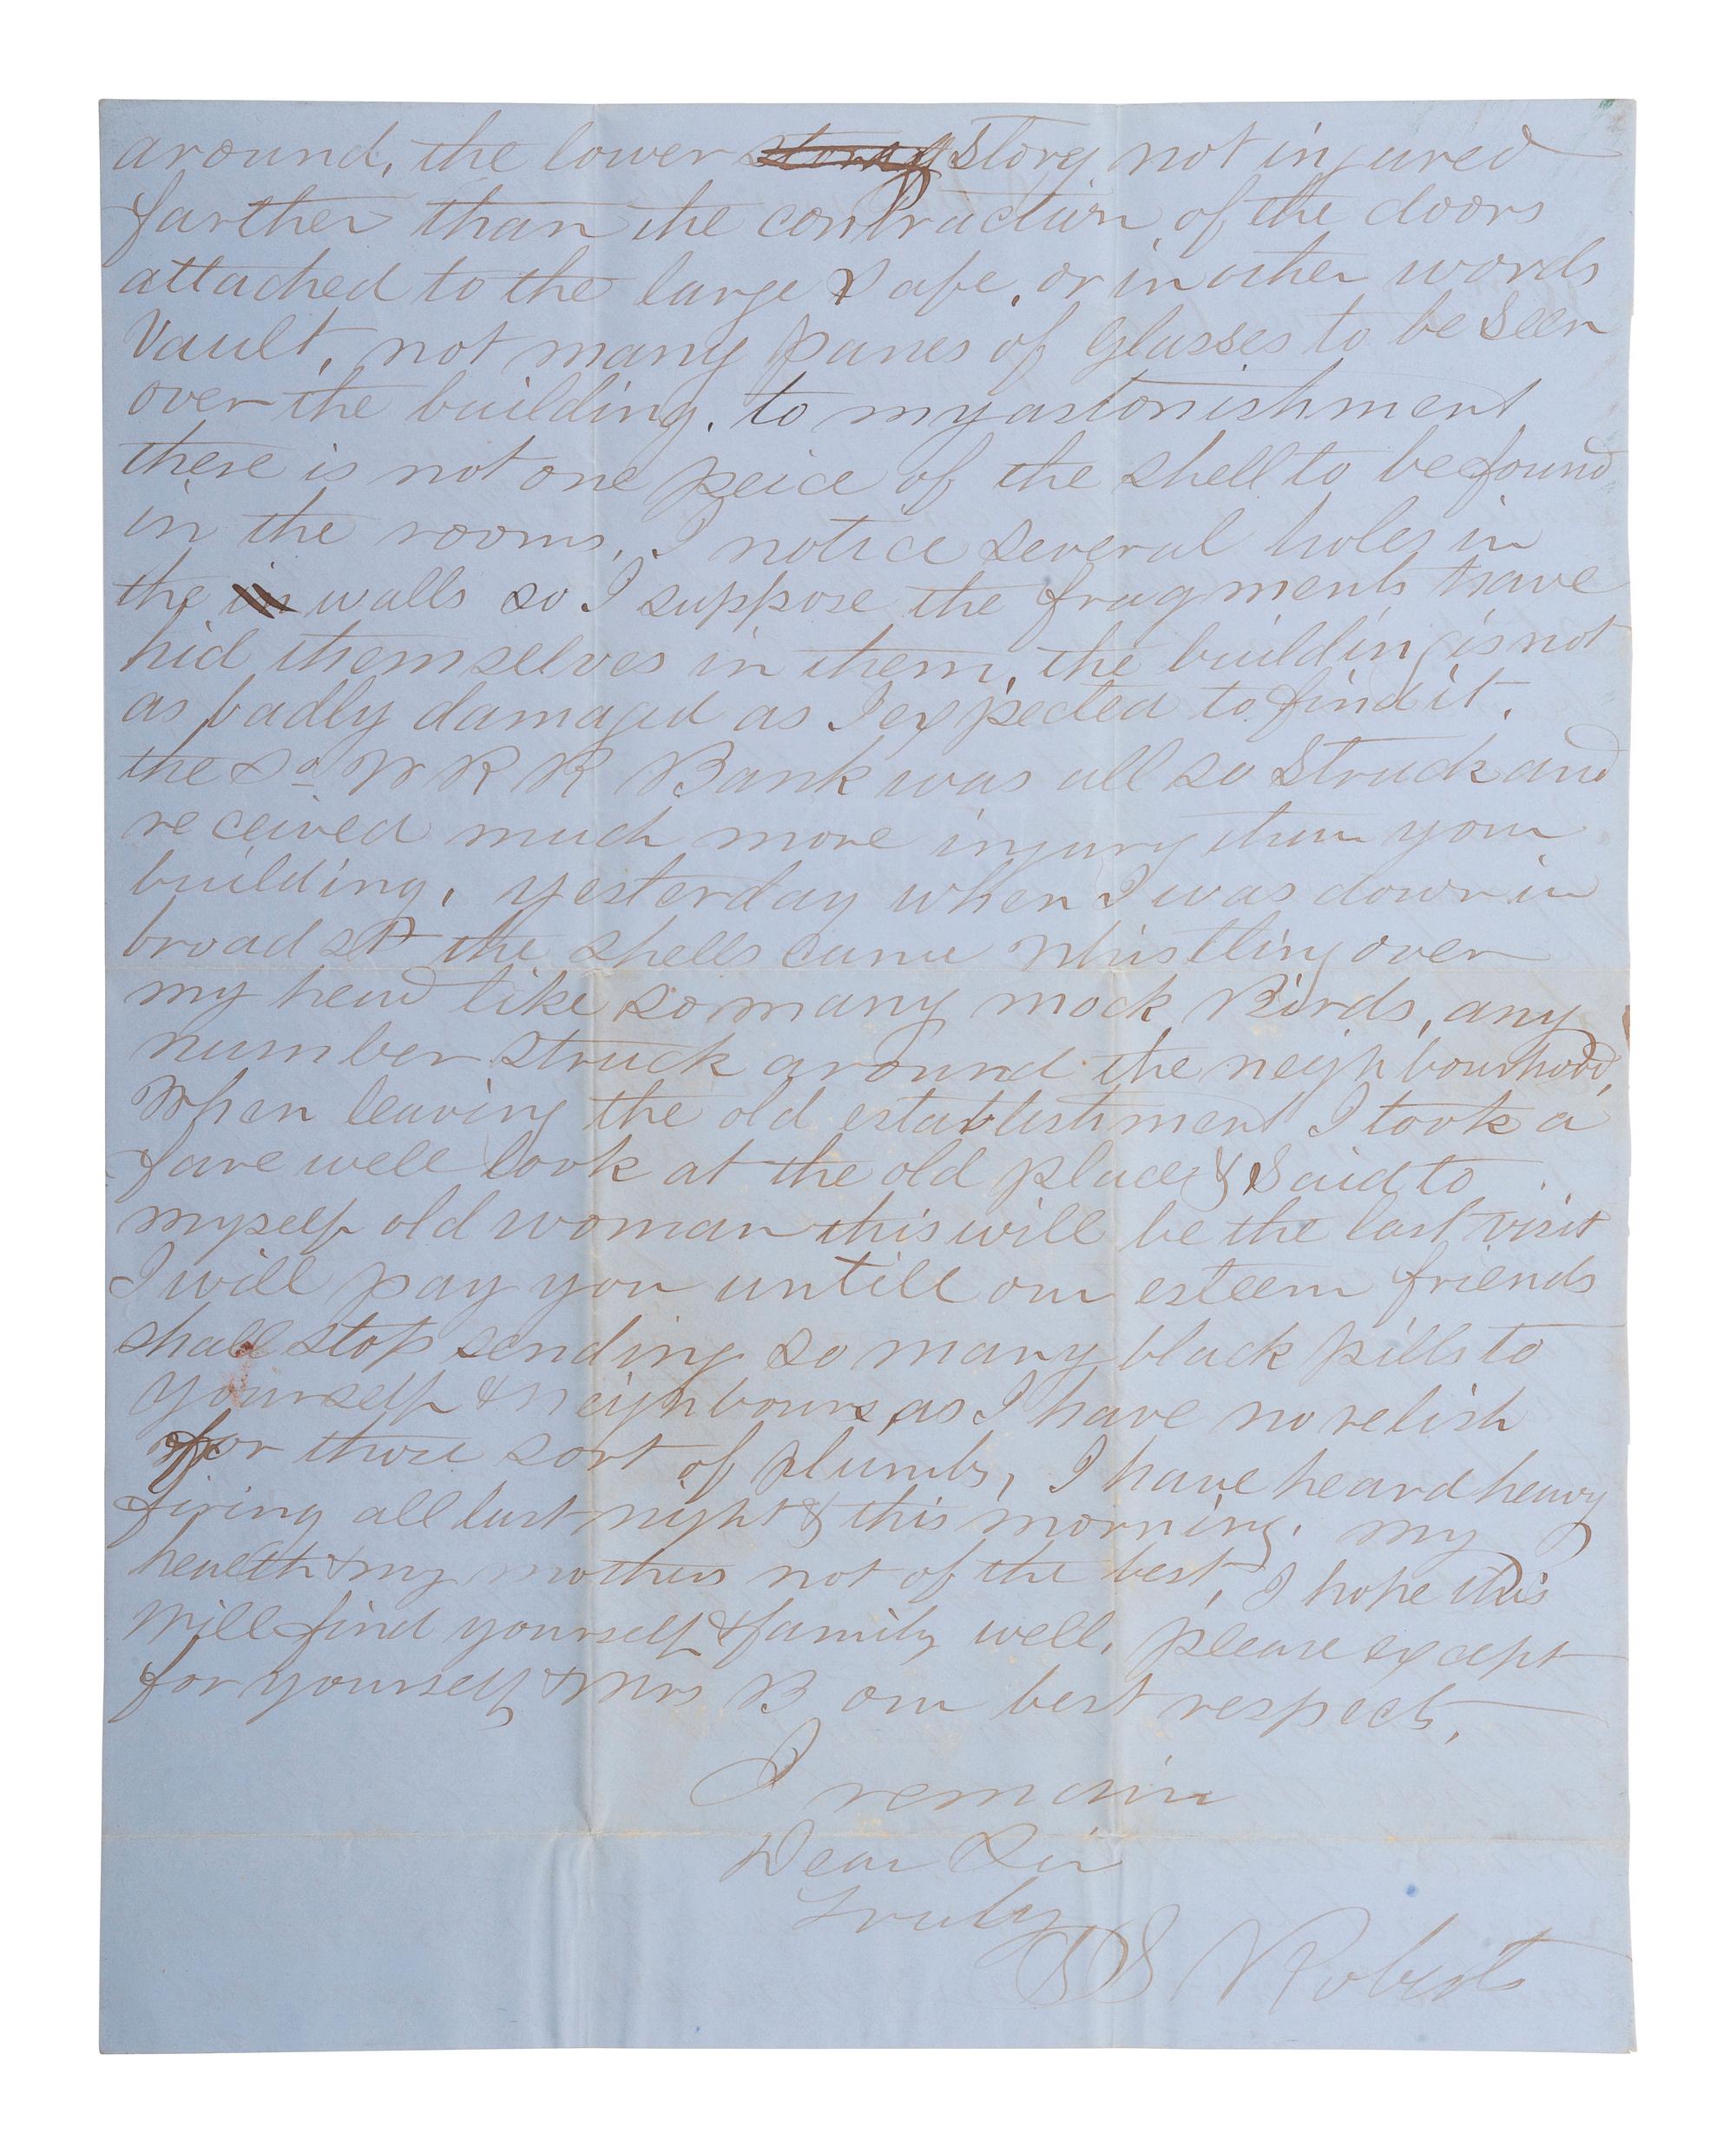 around, the lower story Story not injured
farther than the contraction of the doors
attached to the large Safe, or in other words
Vault, not many panes of Glasses to be Seen
over the building. to my astonishment
there is not one peice of the shell to be found
in the rooms, I notice several holes in
the in walls so I suppose the fragments have
hid themselves in them, the building is not
as badly damaged as I expected to find it.
the So W R R Bank was all so Struck and
received much more injury than your
building, yesterday when I was down in
broad st the shells came whistling over
my head like so many mock Birds, any
number struck around the neighbourhood,
When leaving the old establishment I took a
fare well look at the old place & Said to
myself old woman this will be the last visit
I will pay you untill our esteem friends
shall stop sending so many black pills to
yourself & neighbours, as I have no relish
for those sort of plumbs, I have heard heavy
firing all last night & this morning. my
health & my mothers not of the best, I hope this
will find yourself & family well, please except
for yourself & Mrs B our best respects,
I remain
Dear Sir
Truly
S Roberts